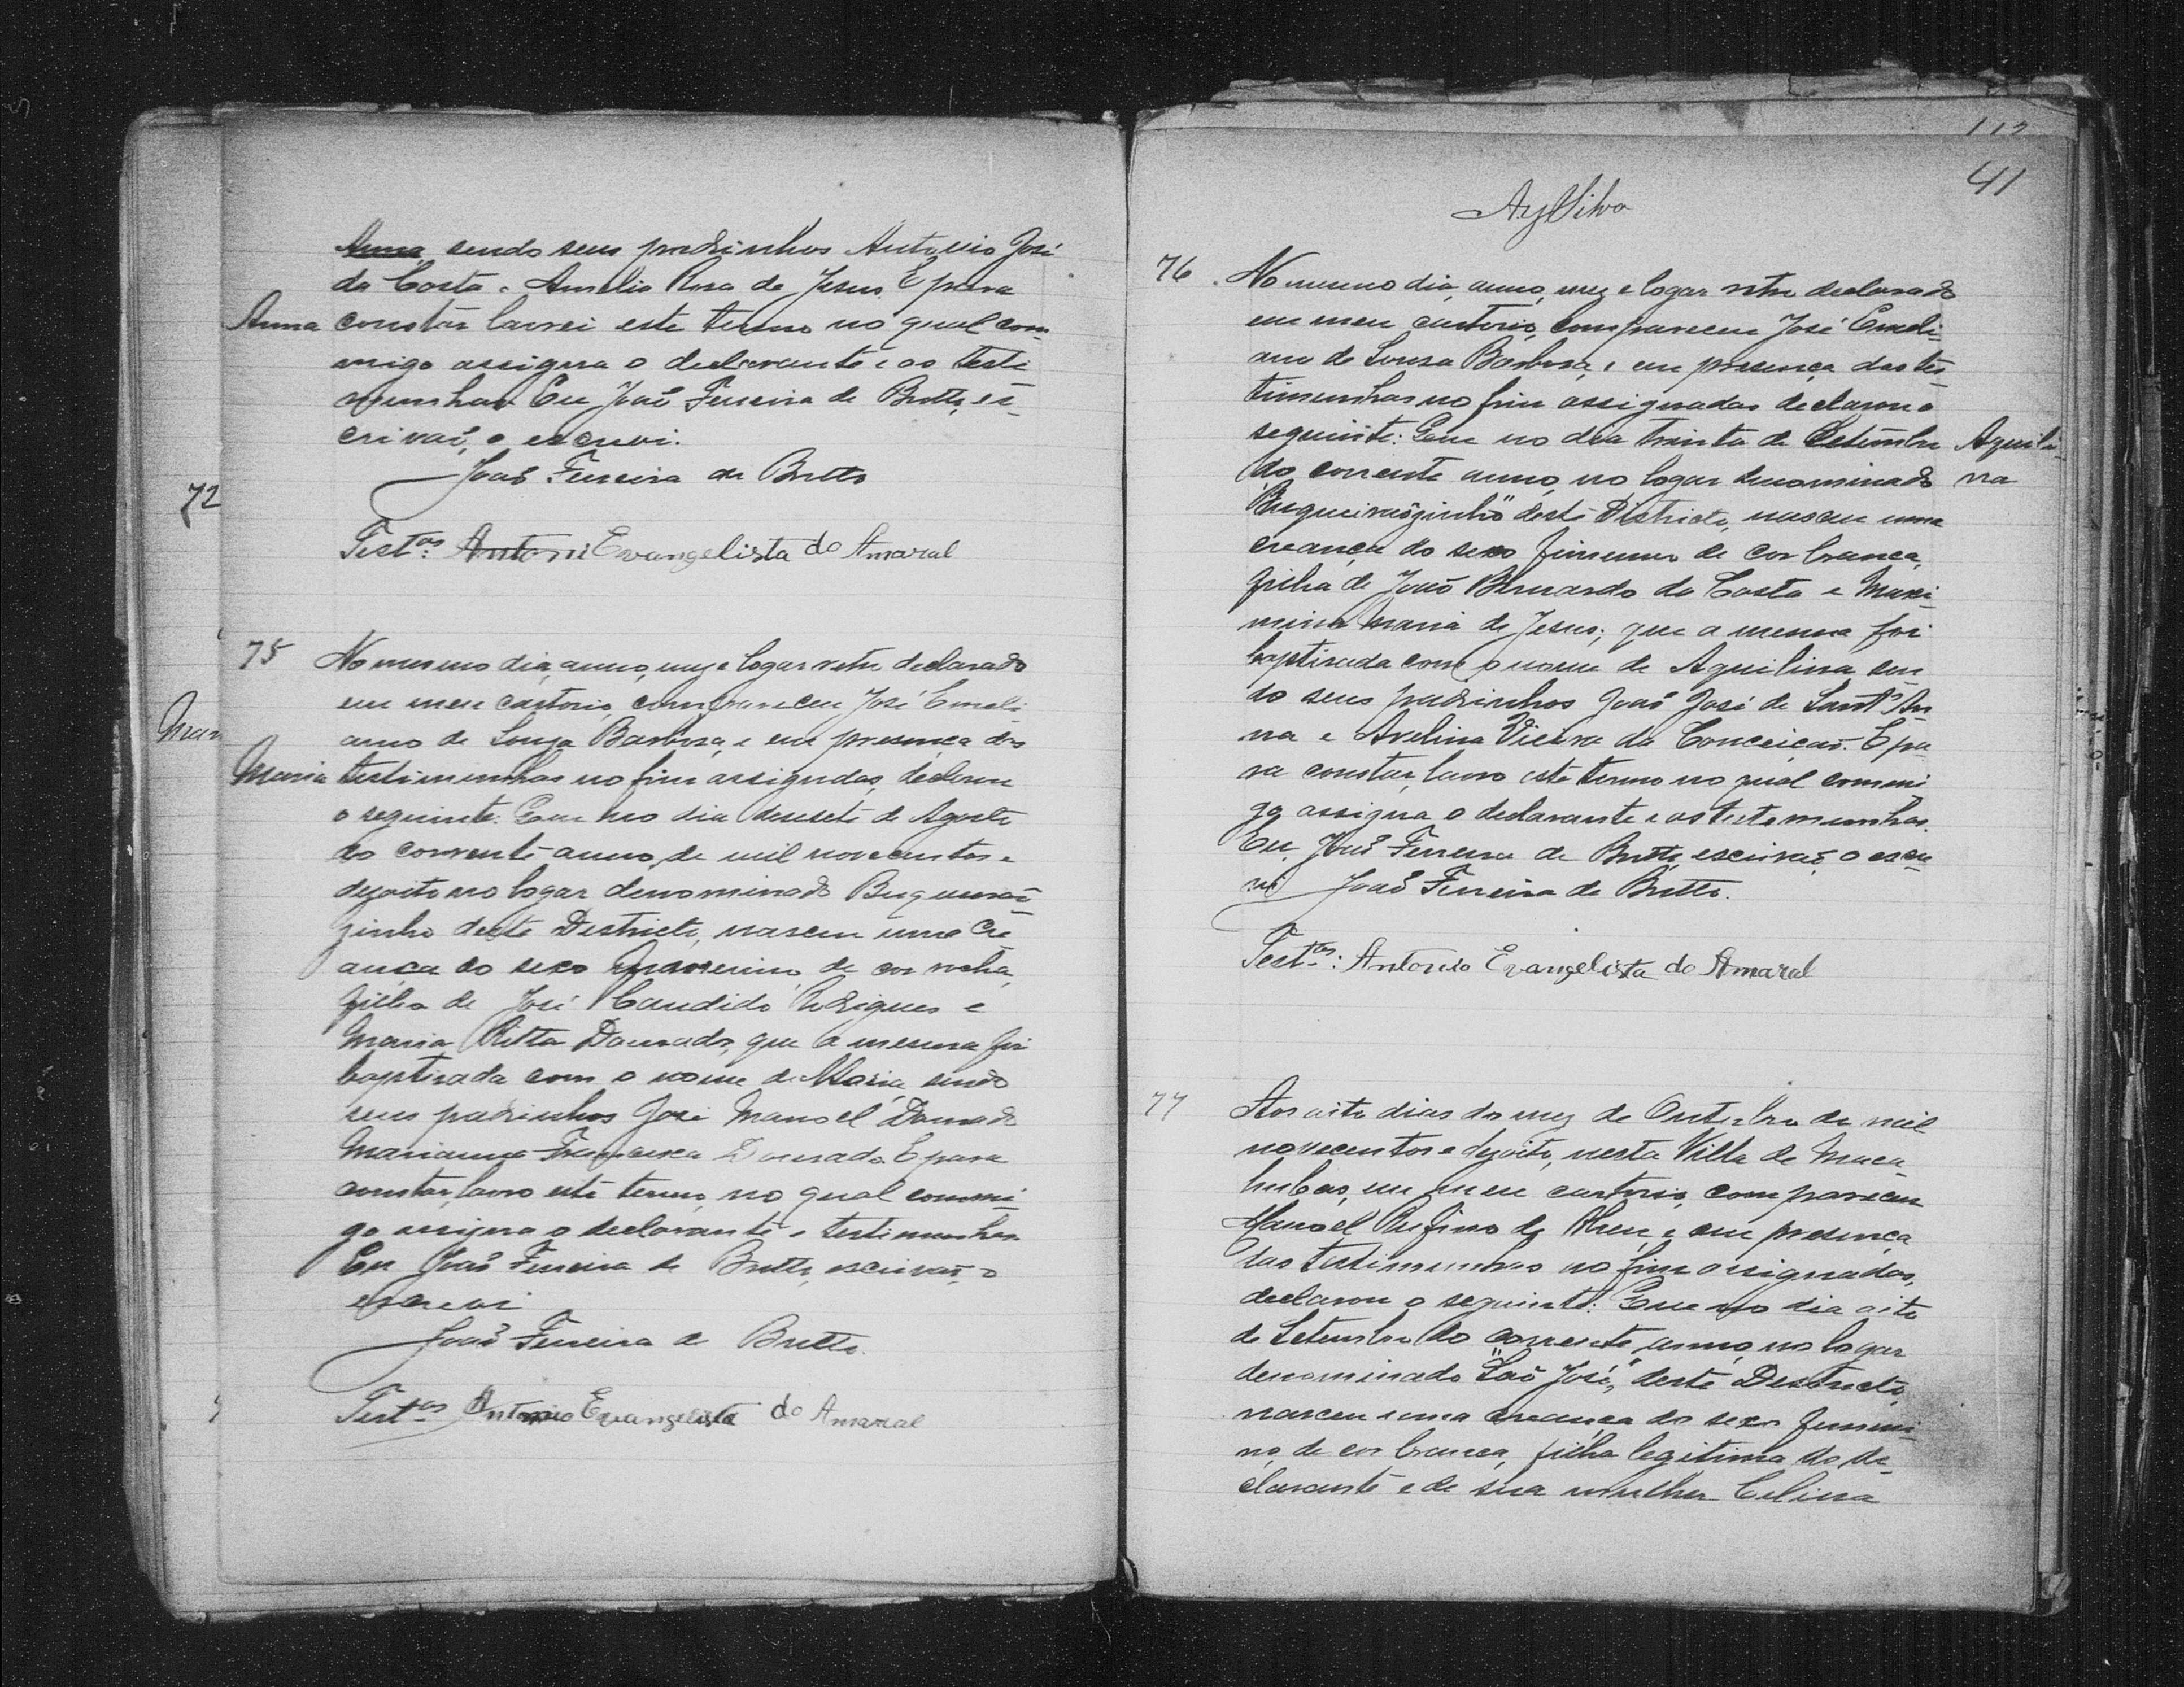 Anna sendo seus padrinhos Antonio José
da Costa e Amelia Rosa de Jesus. E para
Anna
constar lavrei este termo no qual com-
migo assigna o declarante e as teste
munhas. Eu João Ferreira de Britto, es-
crivaõ, o escrevi.
João Ferreira de Britto
72
Test.as: Antoni Evangelista do Amaral
75
No mesmo dia, anno, mez e logar retro declarado
em meu cartorio, compareceu José Emili-
ano de Souza Barbosa, e em presença das
Mar
Maria
testimunhas no fim assignadas, declarou
o seguinte: Que no dia desesete de Agosto
do corrente anno, de mil novecentos e
dezoito no logar denominado Buqueiraõ-
zinho deste Districto, nasceu uma Cre-
ança do sexo femenino, de cor rocha,
filha de José Candido Rodrigues e
Maria Ritta Dourado, que a mesma foi
baptisada com o nome de Maria, sendo
seus padrinhos José Manoel Dourado
Marianna Francisca Dourado. E para
constar, lavro este termo, no qual commi-
go assigna o declarante e testimunhas
Eu João Ferreira de Britto, escrivaõ, o
escrevi
João Ferreira de Britto.
Test.as Antonio Evangelista do Amaral
112
41
AySilva
76
No mesmo dia, anno, mez e logar retro declarado
em meu cartorio, compareceu José Emili-
ano de Sousa Barbosa, e em presença das tes-
timunhas no fim assignadas declarou o
seguinte: Que no dia trinta de Setembro
Aquili-
na
do corrente anno, no logar denominado
"Buqueiraõzinho" deste Districto, nasceu uma
creança do sexo femenino de cor branca,
filha de João Bernardo da Costa e Maxi-
mina Maria de Jesus; que a mesma foi
baptisada com o nome de Aquilina, sen-
do seus padrinhos João José de Sant'An
na e Avelina Vieira da Conceiçaõ. E pa
ra constar, lavro este termo no qual commi-
go assigna o declarante e as testemunhas.
Eu, João Ferreira de Britto, escrivaõ, o escre
vi João Ferreira de Britto.
Test.as: Antonio Evangelista do Amaral
77
Aos oito dias do mez de Outubro de mil
novecentos e dezoito, nesta Villa de Maca-
hubas, em meu cartorio, compareceu
Manoel Rufino de Abreu, e em presença
das testimunhas no fim assignadas,
declarou o seguinte: Que no dia oito
de Setembro do corrente anno, no logar
denominado "Saõ José", deste Districto,
nasceu uma creança do sexo femini-
no, de cor branca, filha legitima do de-
clarante e de sua mulher Celina